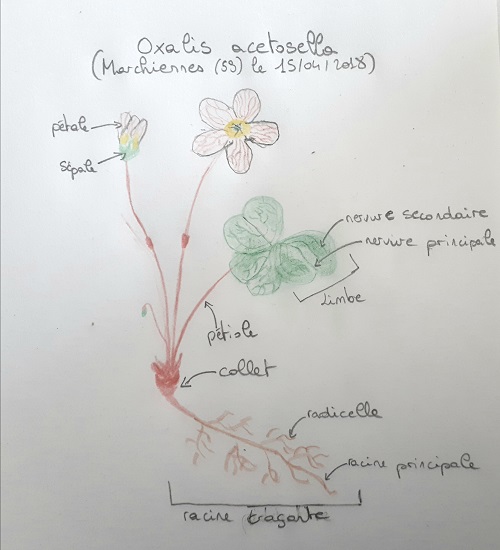 Oxalis acetosella
(Marchiennes (59) le 15/04/2018)
pétale
sépale
nervure secondaire
nervure principale
Limbe
pétiole
collet
radicelle
racine principale
racine traçante